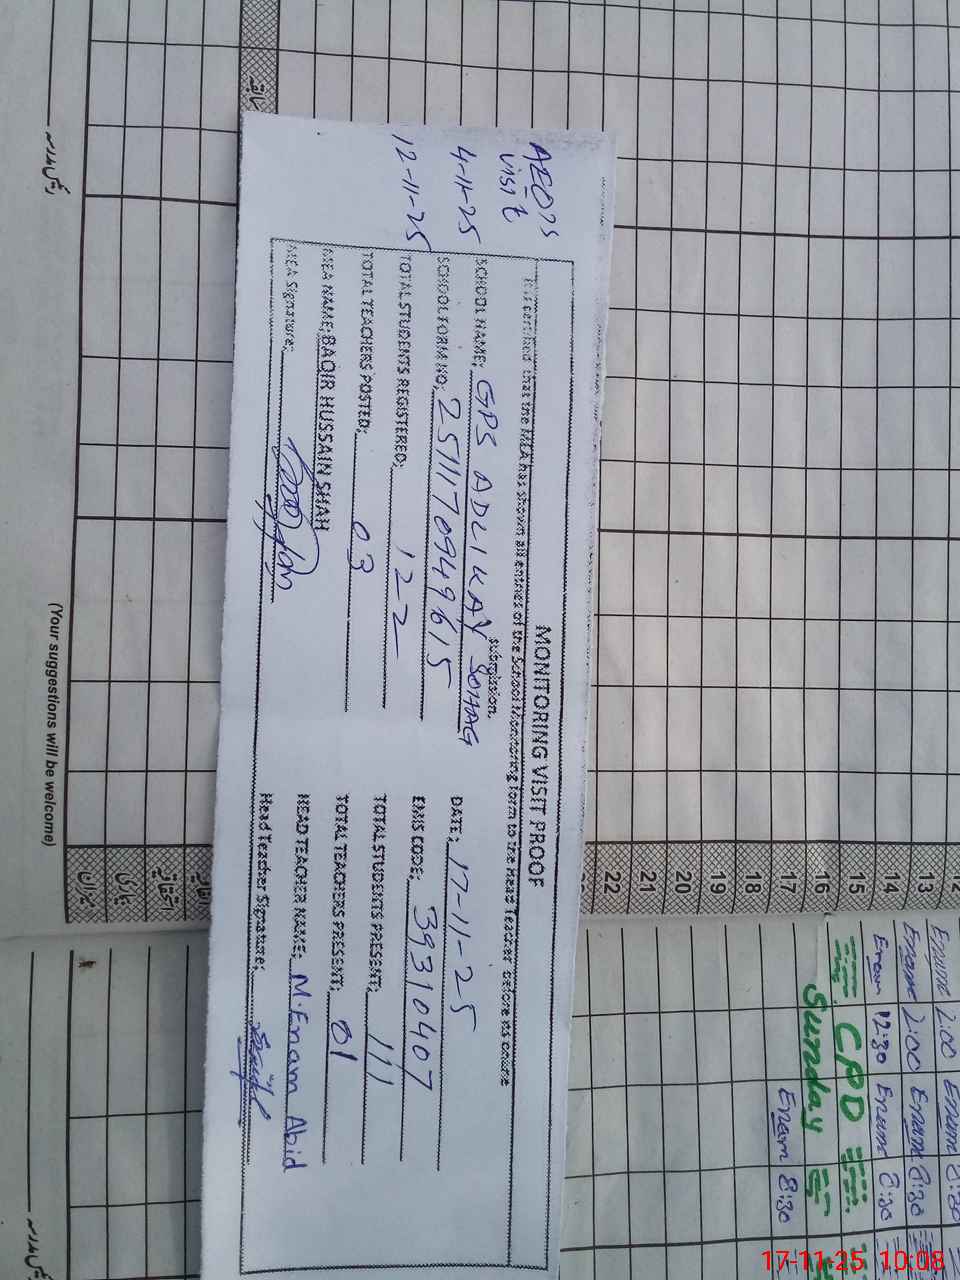 AEO's
visit
4-11-25
12-11-25
MONITORING VISIT PROOF
It is certified that the MEA has shown all entries of the School Monitoring form to the Head Teacher before its online
submission.
SCHOOL NAME: GPS ADLIKAY SOHAG
DATE: 17-11-25
SCHOOL FORM NO: 251117094949615
EMIS CODE: 39310407
TOTAL STUDENTS REGISTERED: 122
TOTAL STUDENTS PRESENT: 111
TOTAL TEACHERS POSTED: 03
TOTAL TEACHERS PRESENT: 01
MEA NAME: BAQIR HUSSAIN SHAH
HEAD TEACHER NAME: M. Enam Abid
MEA Signature:
Head Teacher Signature:
(Your suggestions will be welcome)
12
13
14
15
16
17
18
19
20
21
22
Enam 2:00 Enam
Enam 2:00 Enam 8:30
Enam 12:30 Enam 8:30
CPD
Sunday
Enam 8:30
17-11-25 10:08